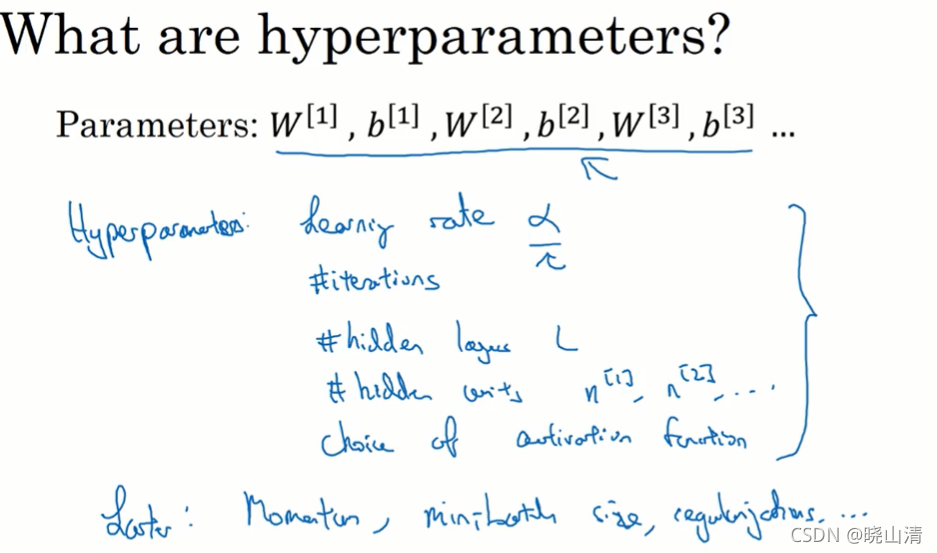 What are hyperparameters?
Parameters: W[1] , b[1] , W[2] , b[2] , W[3] , b[3] ...
Hyperparameters: Learning rate α
#iterations
#hidden layers L
#hidden units n[1], n[2], ...
Choice of activation function
Later: Momentum, mini-batch size, regularizations, ...
CSDN @晓山清